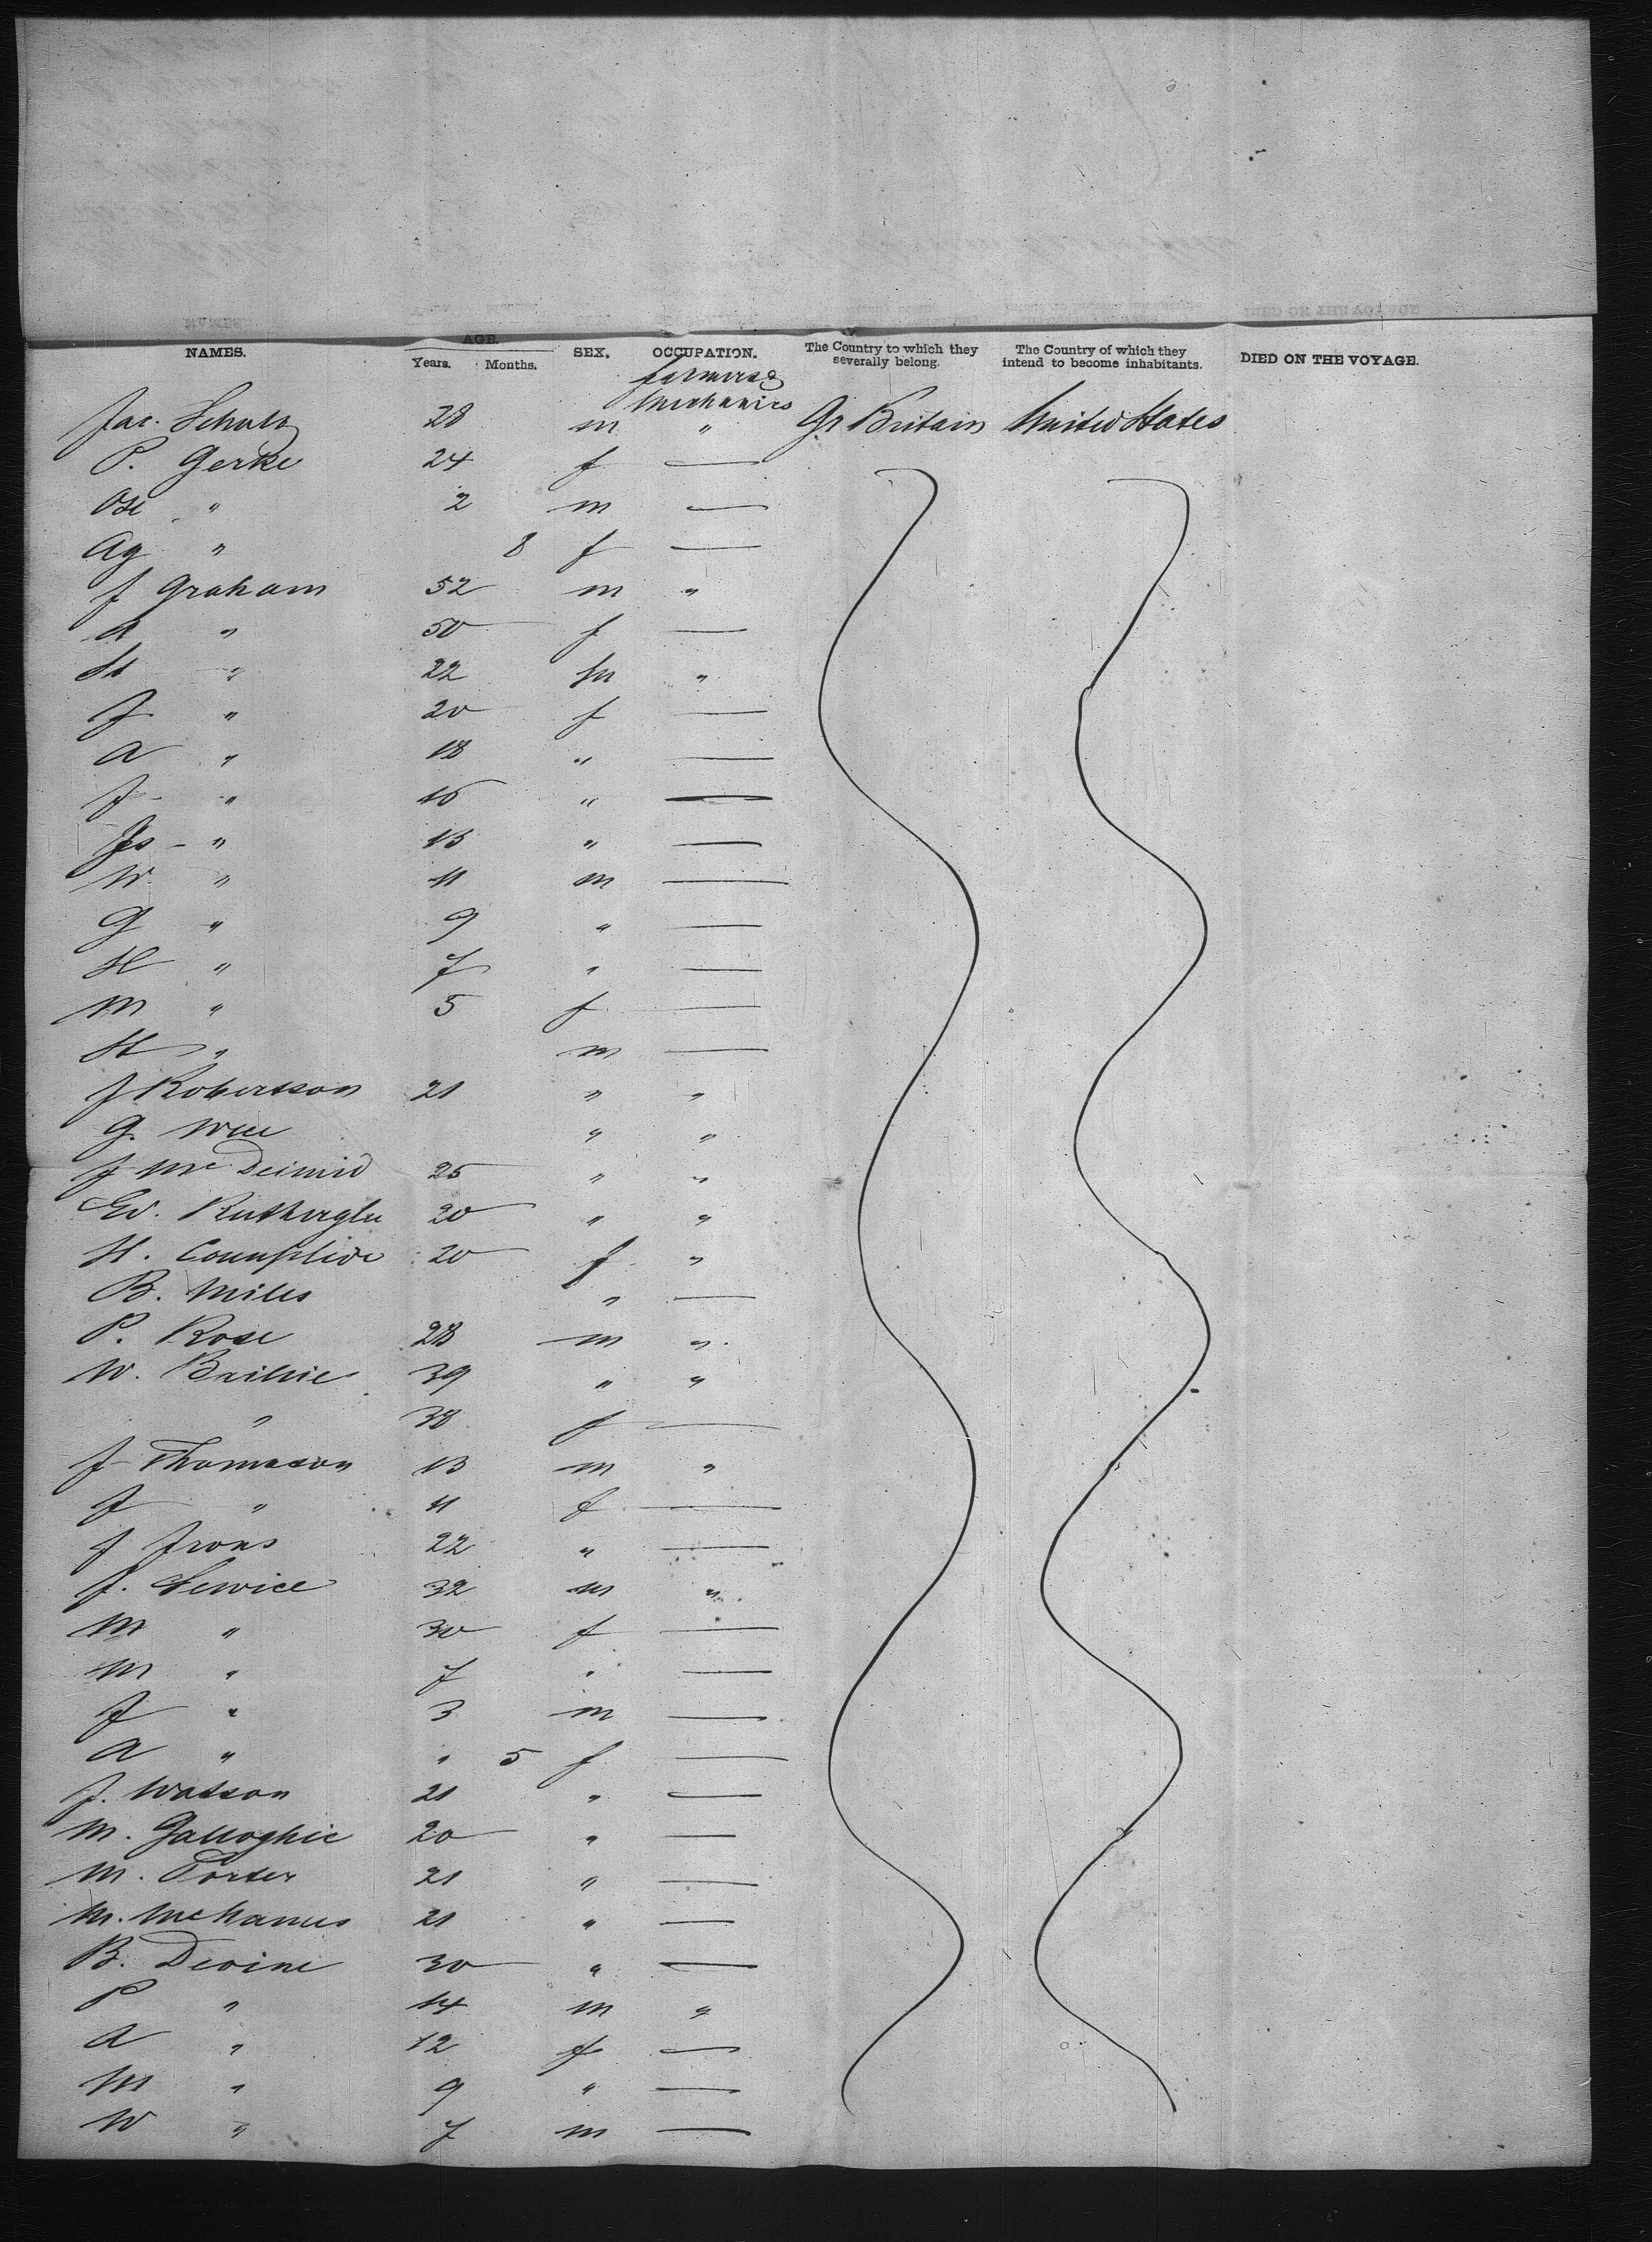 NAMES. AGE. Years. Months. SEX. OCCUPATION. The Country to which they severally belong. The Country of which they intend to become inhabitants. DIED ON THE VOYAGE.
farmers &
Mechanics
Jac. Schultz 28 m " Gr Britain United States
P. Gerke 24 f —
" 2 m —
Ag " 8 f —
J Graham 52 m "
A " 50 f —
" 22 m "
J " 20 f —
A " 18 " —
J " 16 " —
Js - " 13 " —
W " 11 m —
G " 9 " —
H " 7 " —
M " 5 f —
" m —
J Robertson 21 " "
G. " "
J Mc Deimid 25 " "
Ed. Rutherglen 20 " "
H. 20 f "
B. Miles " —
P. Rose 28 m "
W. Baillie 39 " "
" 38 f —
J Thomason 13 m "
J " 11 f —
J Irons 22 " —
J. 32 m "
M " 30 f —
M " 7 " —
J " 3 m —
A " " 5 f —
J. Watson 21 " —
M. Galloghie 20 " —
M. Porter 21 " —
M. McManus 21 " —
B. Devine 30 " —
P " 14 m "
A " 12 f —
M " 9 " —
W " 7 m —